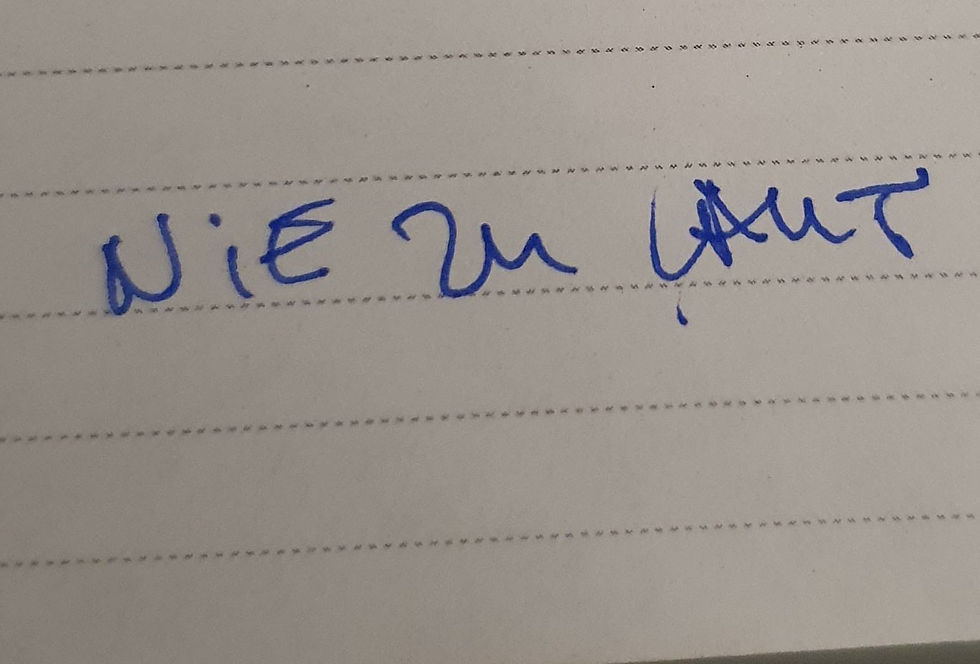 NiE Zu LAuT